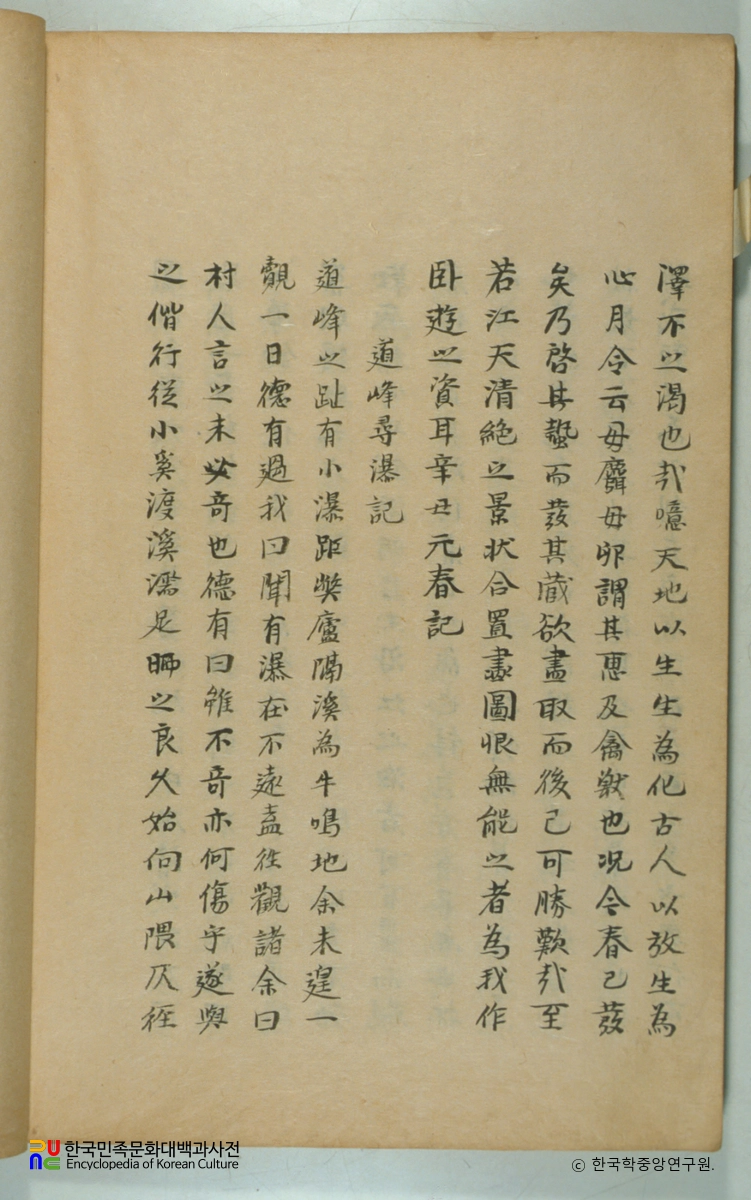 澤不之渴也㢤噫天地以生生為化古人以放生為
心月令云毋麛毋卵謂其惠及禽獸也况今春已發
矣乃啓其蟄而發其蔵欲盡取而後已可勝歎㢤至
若江天清絶之景状合置畵圖恨無能之者為我作
卧遊之資耳辛丑元春記
道峰尋瀑記
道峰之趾有小瀑距弊廬隔溪為牛鳴地余未遑一
覿一日德有過我曰聞有瀑在不遠盍徃觀諸余曰
村人言之未必奇也德有曰雖不奇亦何傷乎遂與
之偕行従小奚渡溪濡足晒之良久始向山隈仄徑
한국민족문화대백과사전
Encyclopedia of Korean Culture
ⓒ 한국학중앙연구원.